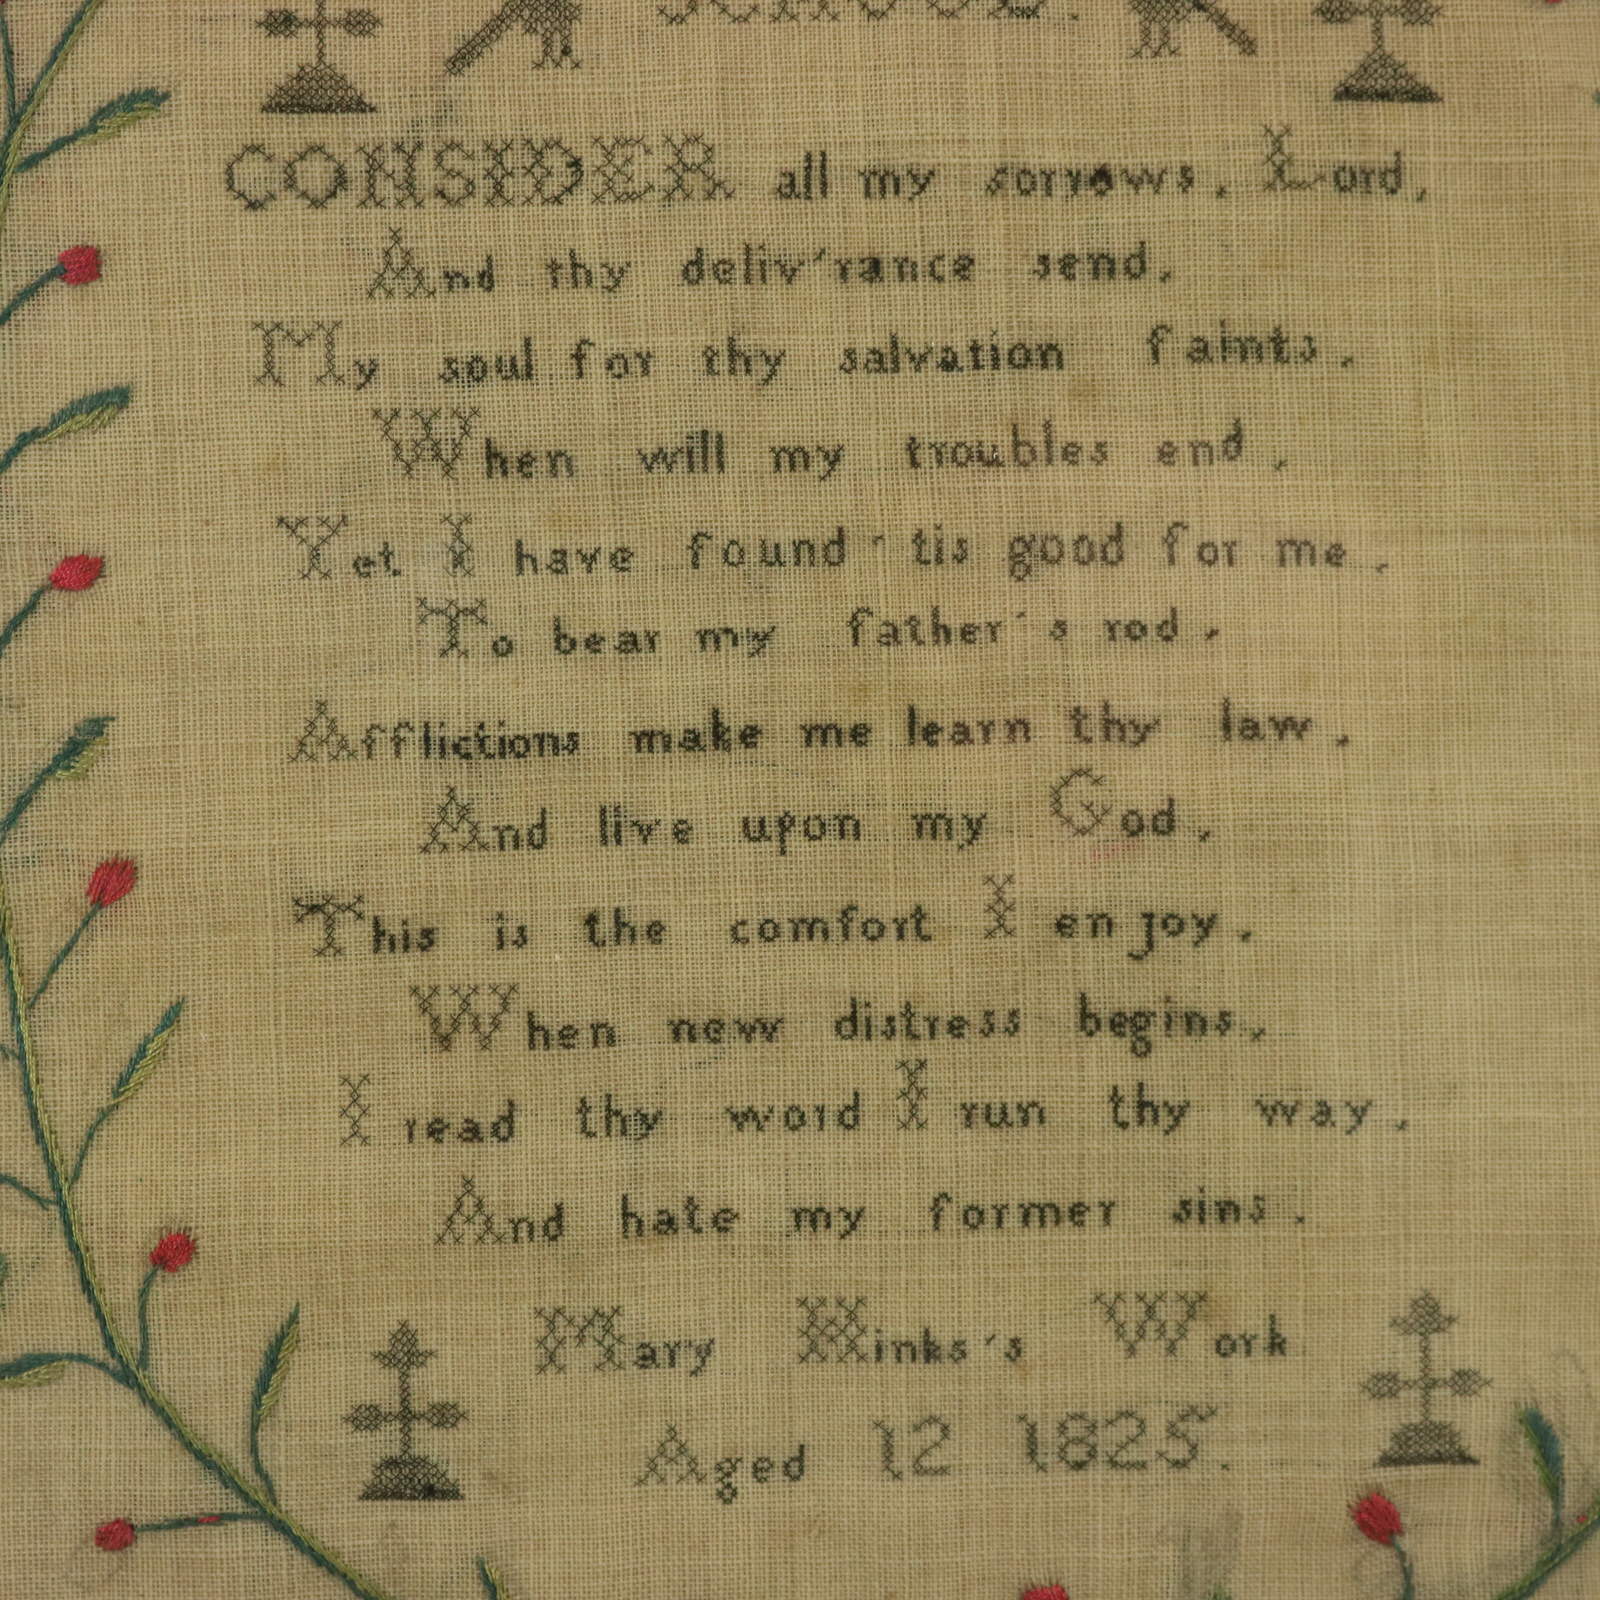 CONSIDER all my sorrows, Lord,
And thy deliv'rance send,
My soul for thy salvation faints,
When will my troubles end,
Yet I have found 'tis good for me,
To bear my father's rod,
Afflictions make me learn thy law,
And live upon my God,
This is the comfort I enjoy,
When new distress begins,
I read thy word I run thy way,
And hate my former sins.
Mary Hinks's Work
Aged 12 1825.